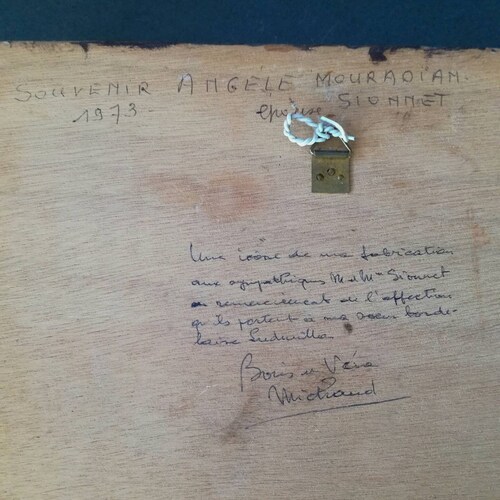 SOUVENIR ANGÈLE MOURADIAN.
1973 épouse SIONNET
Une icône de ma fabrication
aux sympathiques M et Mme Sionnet
en remerciements de l'affection
qu'ils portent à ma sœur borde-
laise Ludmilla
Boris et Véra
Michaud